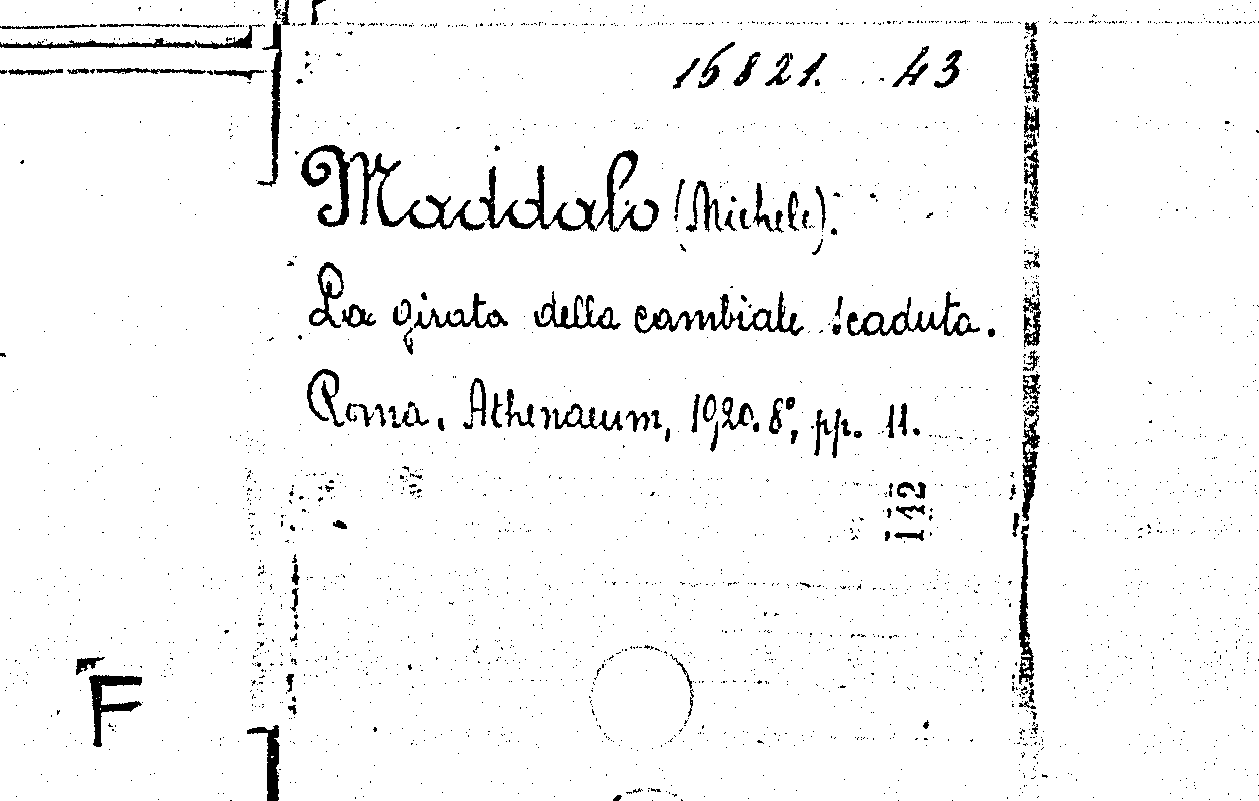 15821. 43
Maddalo (Michele).
La girata della cambiale scaduta.
Roma. Athenaeum, 1920. 8°, pp. 11.
142
F